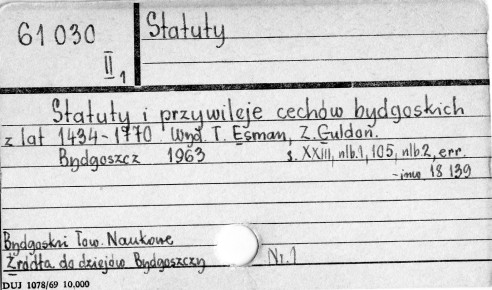 61030
II 1
Statuty
Statuty i przywileje cechów bydgoskich
z lat 1434-1770. Wyd. T. Esman, Z. Guldon.
Bydgoszcz 1963 s. XXIII, nlb.1, 105, nlb.2, err.
18 139
Bydgoski Tow. Naukowe
Źródła do dziejów Bydgoszczy Nr.1
DUJ 1078/69 10,000